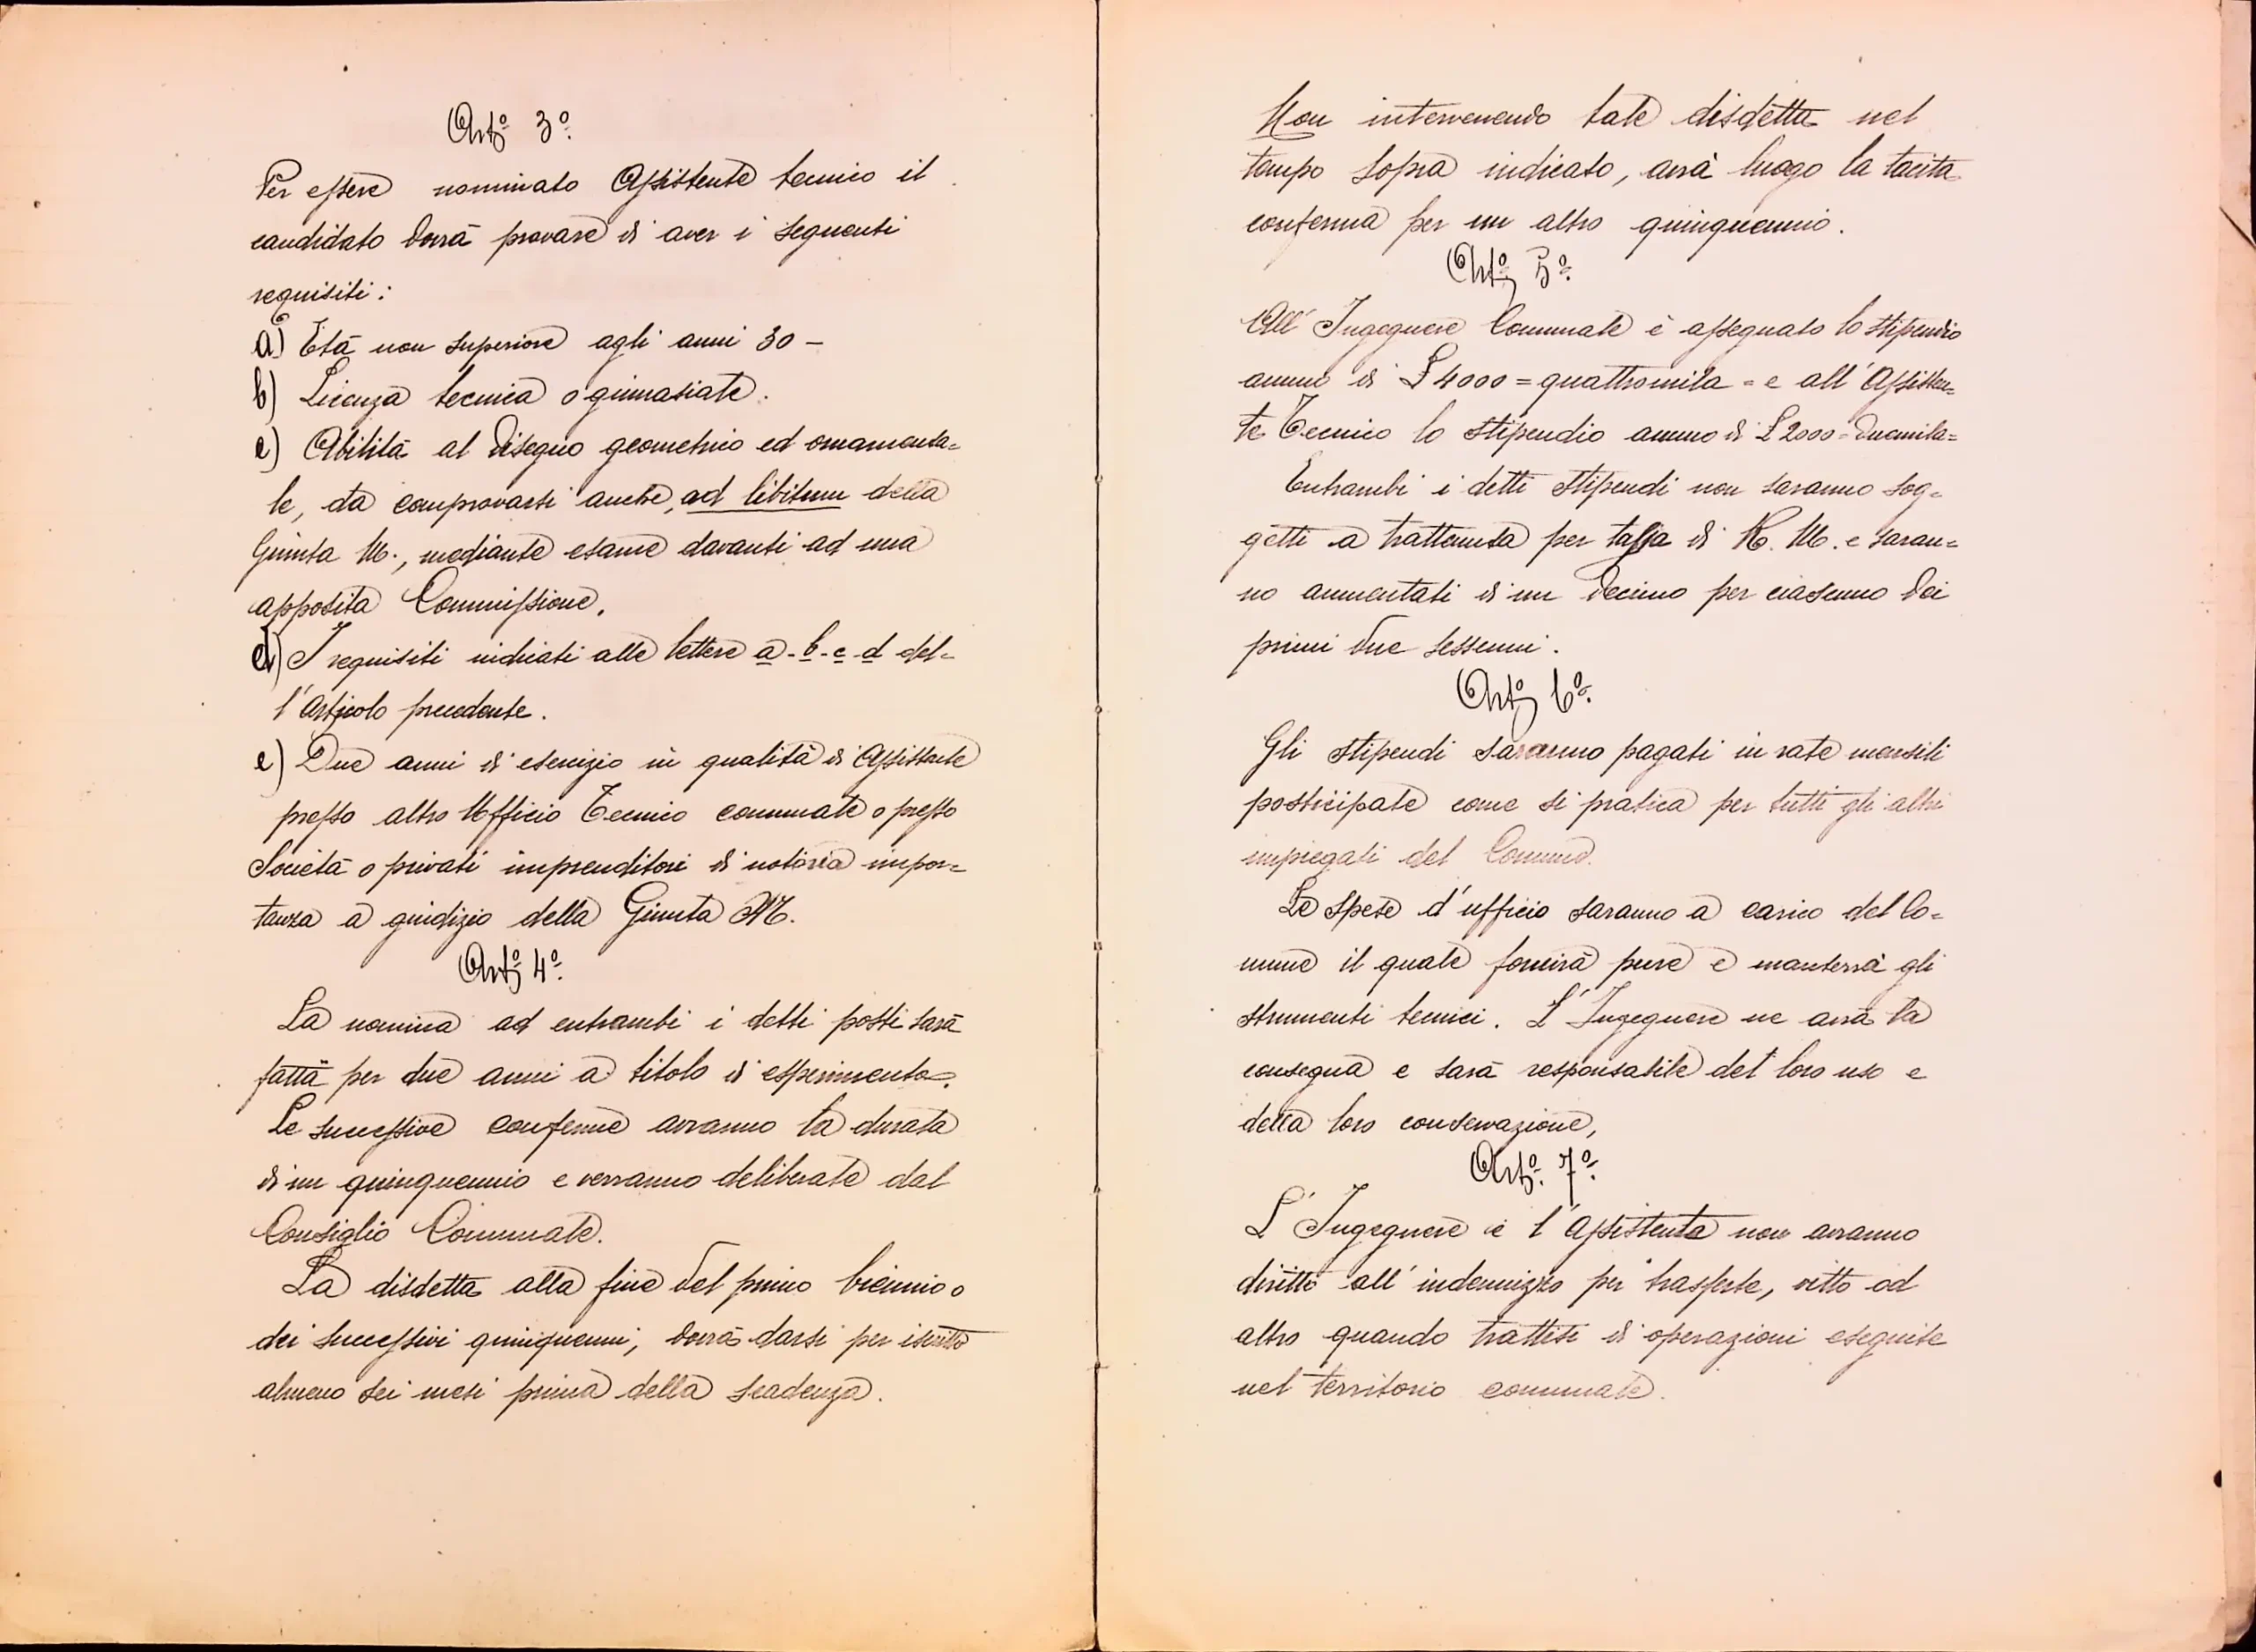 Art.º 3º.
Per essere nominato Assistente tecnico il
candidato dovrà provare di aver i seguenti
requisiti:
a) Età non superiore agli anni 30 –
b) Licenza tecnica o ginnasiale.
c) Abilità al disegno geometrico ed ornamenta=
le, da comprovarsi anche, ad libitum della
Giunta M., mediante esame davanti ad una
apposita Commissione.
d) I requisiti indicati alle lettere a - b - c - d del=
l'Articolo precedente.
e) Due anni di esercizio in qualità di Assistente
presso altro Ufficio Tecnico comunale o presso
Società o privati imprenditori di notoria impor=
tanza a giudizio della Giunta M.
Art.º 4º.
La nomina ad entrambi i detti posti sarà
fatta per due anni a titolo di esperimento.
Le successive conferme avranno la durata
di un quinquennio e verranno deliberate dal
Consiglio Comunale.
La disdetta alla fine del primo biennio o
dei successivi quinquenni, dovrà darsi per iscritto
almeno sei mesi prima della scadenza.
Non intervenendo tale disdetta nel
tempo sopra indicato, avrà luogo la tacita
conferma per un altro quinquennio.
Art.º 5º.
All'Ingegnere Comunale è assegnato lo stipendio
annuo di £ 4000 = quattromila = e all'Assisten=
te Tecnico lo stipendio annuo di £ 2000 = duemila =
Entrambi i detti stipendi non saranno sog=
getti a trattenuta per tassa di R. M. e saran=
no aumentati di un decimo per ciascuno dei
primi due sessenni.
Art.º 6º.
Gli stipendi saranno pagati in rate mensili
posticipate come si pratica per tutti gli altri
impiegati del Comune.
Le spese d'ufficio saranno a carico del Co=
mune il quale fornirà pure e manterrà gli
strumenti tecnici. L'Ingegnere ne avrà la
consegna e sarà responsabile del loro uso e
della loro conservazione,
Art.º 7º.
L'Ingegnere e l'Assistente non avranno
diritto all'indennizzo per trasferte, vitto od
altro quando trattisi di operazioni eseguite
nel territorio comunale.